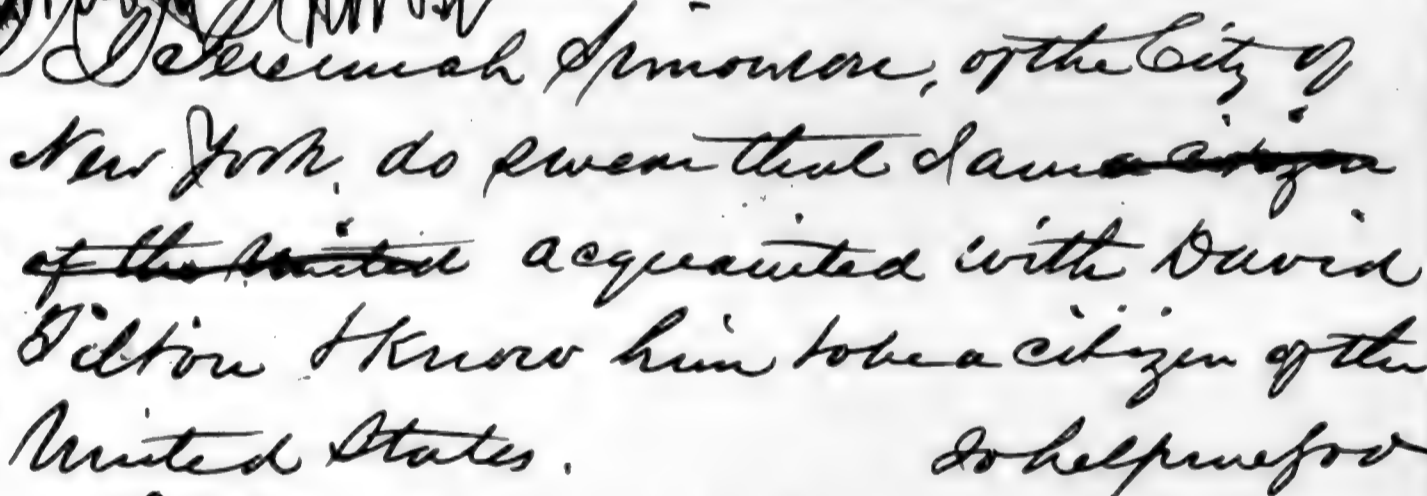 I Jeremiah Simonson, of the City of
New York, do swear that I am a citizen
of the United acquainted with David
Tilton & know him to be a citizen of the
United States. So help me God